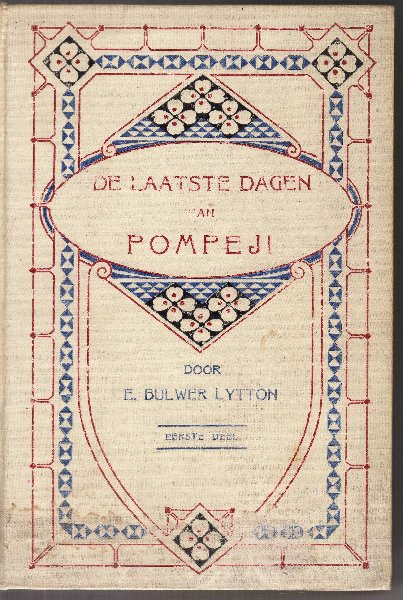 DE LAATSTE DAGEN
VAN
POMPEJI
DOOR
E. BULWER LYTTON
EERSTE DEEL